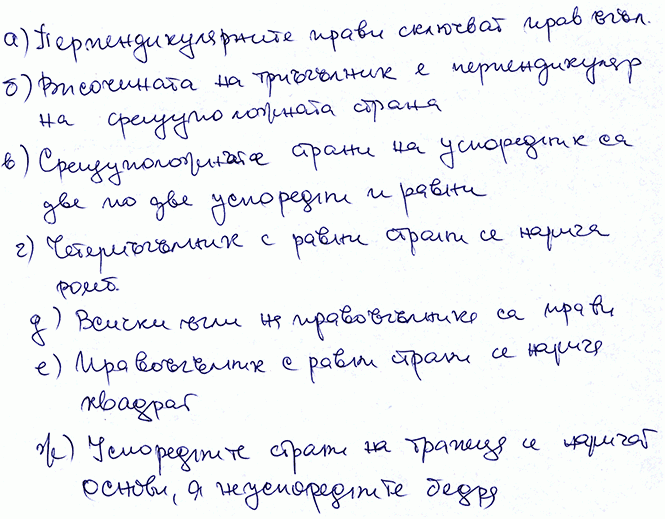 а) Перпендикулярните прави сключват прав ъгъл.
б) Височината на триъгълник е перпендикуляр
на срещуположната страна
в) Срещуположните страни на успоредник са
две по две успоредни и равни
г) Четириъгълник с равни страни се нарича
ромб.
д) Всички ъгли на правоъгълника са прави
е) Правоъгълник с равни страни се нарича
квадрат
ж) Успоредните страни на трапеца се наричат
основи, а неуспоредните бедра